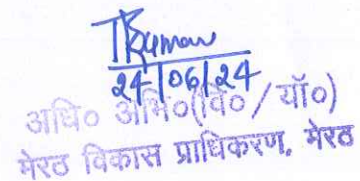 TKumar
24/06/24
अधि० अभि०(वि०/याँ०)
मेरठ विकास प्राधिकरण, मेरठ